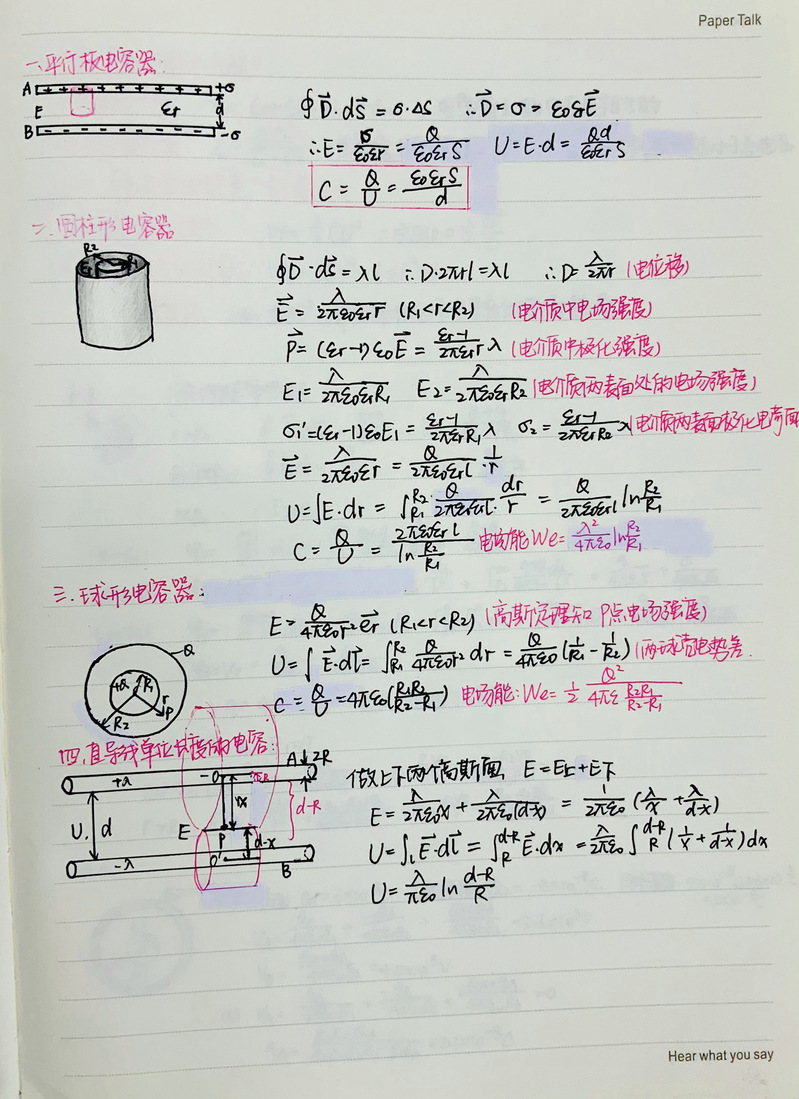 Paper Talk
一.平行板电容器:
A + + + + + + + + + +σ
E εr d
B - - - - - - - - - -σ
∮D⃗·dS⃗ = σ·ΔS ∴D⃗ = σ = ε₀εrE⃗
∴E = σ/(ε₀εr) = Q/(ε₀εrS) U = E·d = Qd/(ε₀εrS)
C = Q/U = ε₀εrS/d
二.圆柱形电容器
R₂ R₁
∮D⃗·dS⃗ = λl ∴D·2πrl = λl ∴D = λ/(2πr) (电位移)
E⃗ = λ/(2πε₀εrr) (R₁<r<R₂) (电介质中电场强度)
P⃗ = (εr-1)ε₀E⃗ = (εr-1)/(2πεrr) λ (电介质中极化强度)
E₁ = λ/(2πε₀εrR₁) E₂ = λ/(2πε₀εrR₂) (电介质两表面处的电场强度)
σ₁' = (εr-1)ε₀E₁ = (εr-1)/(2πεrR₁) λ σ₂ = (εr-1)/(2πεrR₂) λ (电介质两表面极化电荷面
E⃗ = λ/(2πε₀εr) = Q/(2πε₀εrl)·1/r
U = ∫E·dr = ∫R₁^R₂ Q/(2πε₀εrl)·dr/r = Q/(2πε₀εrl) ln R₂/R₁
C = Q/U = 2πε₀εrl/(ln R₂/R₁) 电场能We = λ²/(4πε₀) ln R₂/R₁
三.球形电容器:
E = Q/(4πε₀r²) e⃗r (R₁<r<R₂) (高斯定理知P点电场强度)
U = ∫E⃗·dl⃗ = ∫R₁^R₂ Q/(4πε₀r²) dr = Q/(4πε₀) (1/R₁ - 1/R₂) (两球壳电势差
C = Q/U = 4πε₀(R₁R₂/(R₂-R₁)) 电场能:We = 1/2 Q²/(4πε R₂R₁/(R₂-R₁))
-Q
+Q R₁ r P
R₂
四.直导线单位长度的电容:
A 2R
+λ -O R
U d E x d-R
P d-x
-λ O' B
做上下两个高斯面, E = E上+E下
E = λ/(2πε₀x) + λ/(2πε₀(d-x)) = 1/(2πε₀) (λ/x + λ/(d-x))
U = ∫ₗE⃗·dl⃗ = ∫R^(d-R) E⃗·dx = λ/(2πε₀) ∫R^(d-R) (1/x + 1/(d-x))dx
U = λ/(πε₀) ln (d-R)/R
Hear what you say